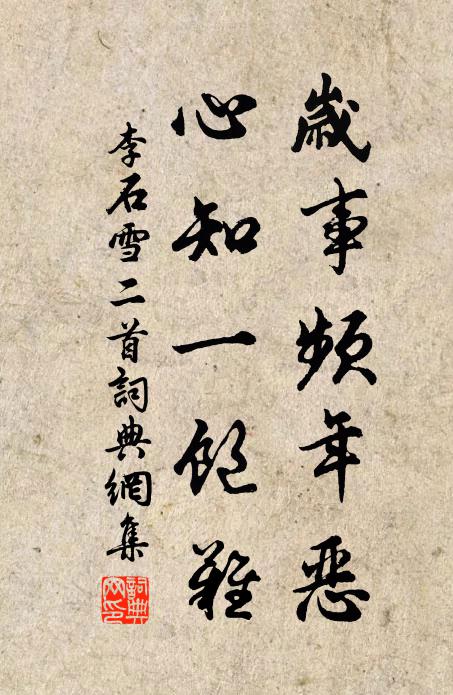 歲事頻年惡
心知一飽難
李石雪二首詞典網集
詞典
网印